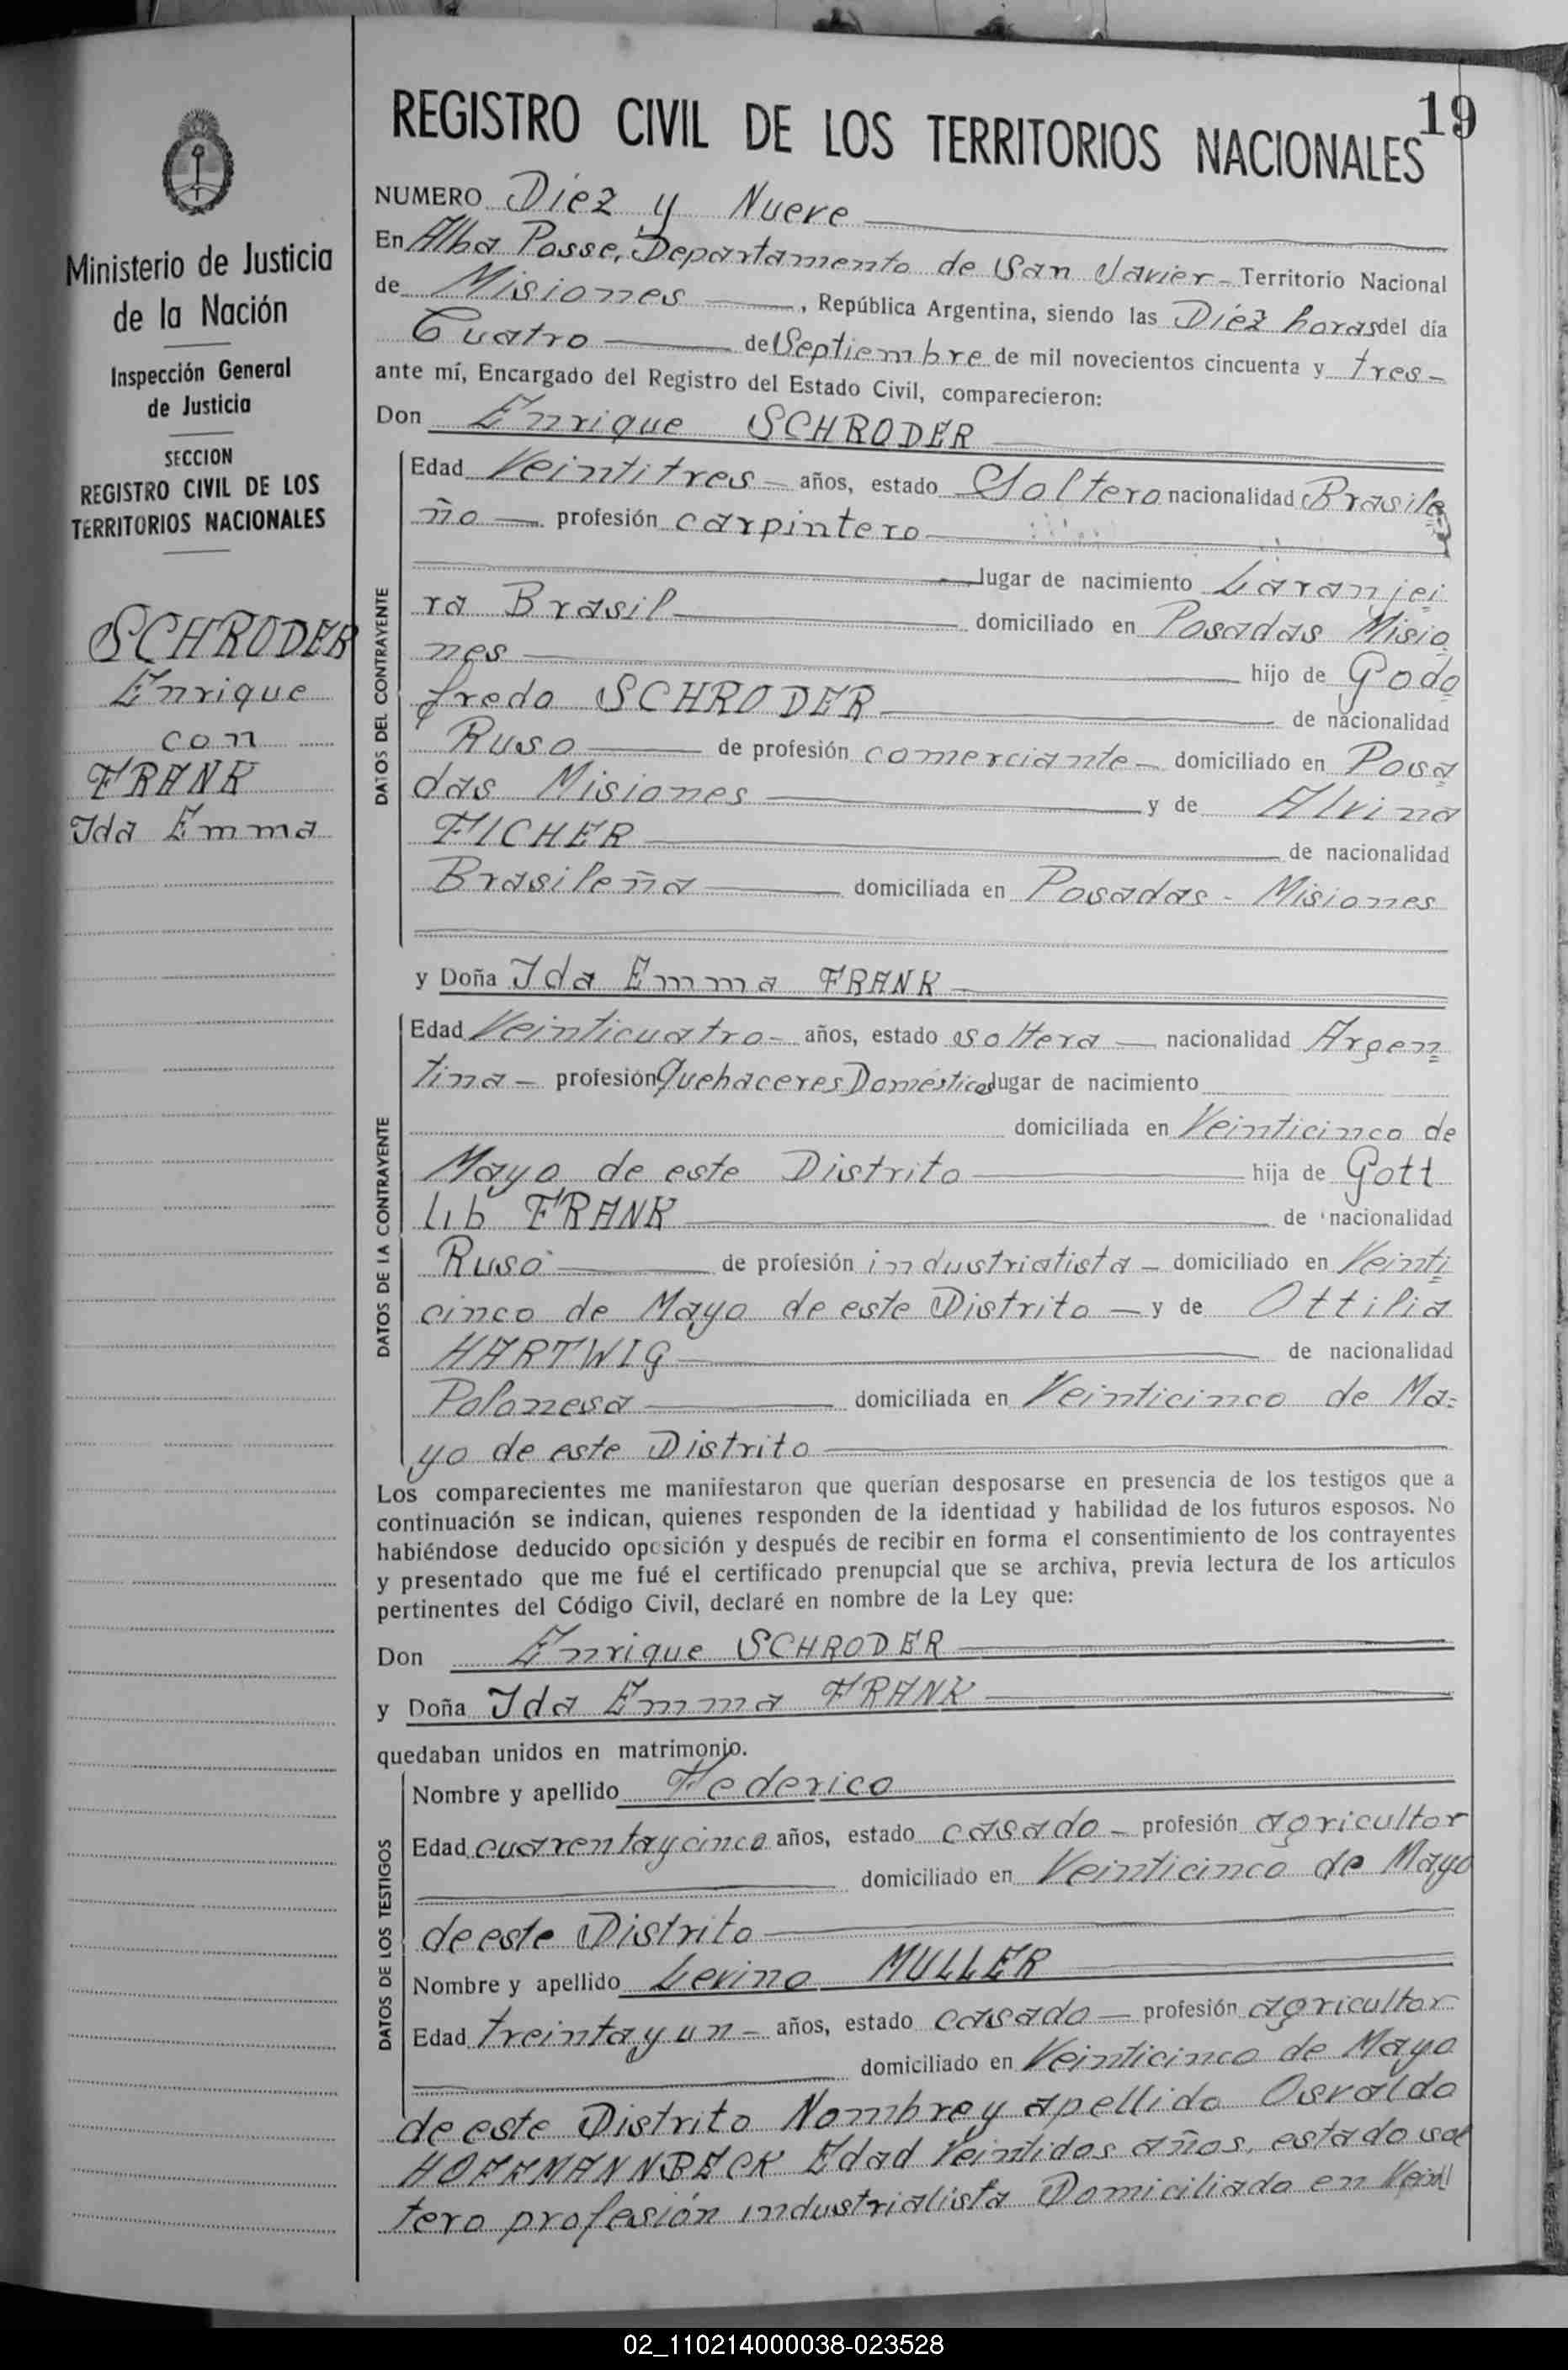 19
REGISTRO CIVIL DE LOS TERRITORIOS NACIONALES
Ministerio de Justicia
de la Nación
Inspección General
de Justicia
SECCION
REGISTRO CIVIL DE LOS
TERRITORIOS NACIONALES
SCHRODER
Enrique
con
FRANK
Ida Emma
NUMERO Diez y Nueve
En Alba Posse, Departamento de San Javier - Territorio Nacional
de Misiones, República Argentina, siendo las Diez horas del día
Cuatro de Septiembre de mil novecientos cincuenta y tres
ante mí, Encargado del Registro del Estado Civil, comparecieron:
Don Enrique SCHRODER
DATOS DEL CONTRAYENTE
Edad Veintitres - años, estado Soltero nacionalidad Brasile
ño - profesión carpintero
lugar de nacimiento Laranjei
ra Brasil domiciliado en Posadas Misio
nes hijo de Godo
fredo SCHRODER de nacionalidad
Ruso de profesión comerciante - domiciliado en Posa
das Misiones y de Alvina
FICHER de nacionalidad
Brasileña domiciliada en Posadas - Misiones
y Doña Ida Emma FRANK
DATOS DE LA CONTRAYENTE
Edad Veinticuatro - años, estado soltera - nacionalidad Argen
tina - profesión Quehaceres Domésticos lugar de nacimiento
domiciliada en Veinticinco de
Mayo de este Distrito hija de Gott
lib FRANK de nacionalidad
Ruso de profesión industriatista - domiciliado en Veinti
cinco de Mayo de este Distrito - y de Ottilia
HARTWIG de nacionalidad
Polonesa domiciliada en Veinticinco de Ma=
yo de este Distrito
Los comparecientes me manifestaron que querían desposarse en presencia de los testigos que a
continuación se indican, quienes responden de la identidad y habilidad de los futuros esposos. No
habiéndose deducido oposición y después de recibir en forma el consentimiento de los contrayentes
y presentado que me fué el certificado prenupcial que se archiva, previa lectura de los artículos
pertinentes del Código Civil, declaré en nombre de la Ley que:
Don Enrique SCHRODER
y Doña Ida Emma FRANK
quedaban unidos en matrimonio.
DATOS DE LOS TESTIGOS
Nombre y apellido Federico
Edad cuarentaycinco años, estado casado - profesión agricultor
domiciliado en Veinticinco de Mayo
de este Distrito
Nombre y apellido Levino MULLER
Edad treinta y un - años, estado casado - profesión agricultor
domiciliado en Veinticinco de Mayo
de este Distrito Nombre y apellido Osvaldo
HOFFMANNBECK Edad Veintidos años, estado sol
tero profesión industrialista Domiciliado en Veinti
02_110214000038-023528